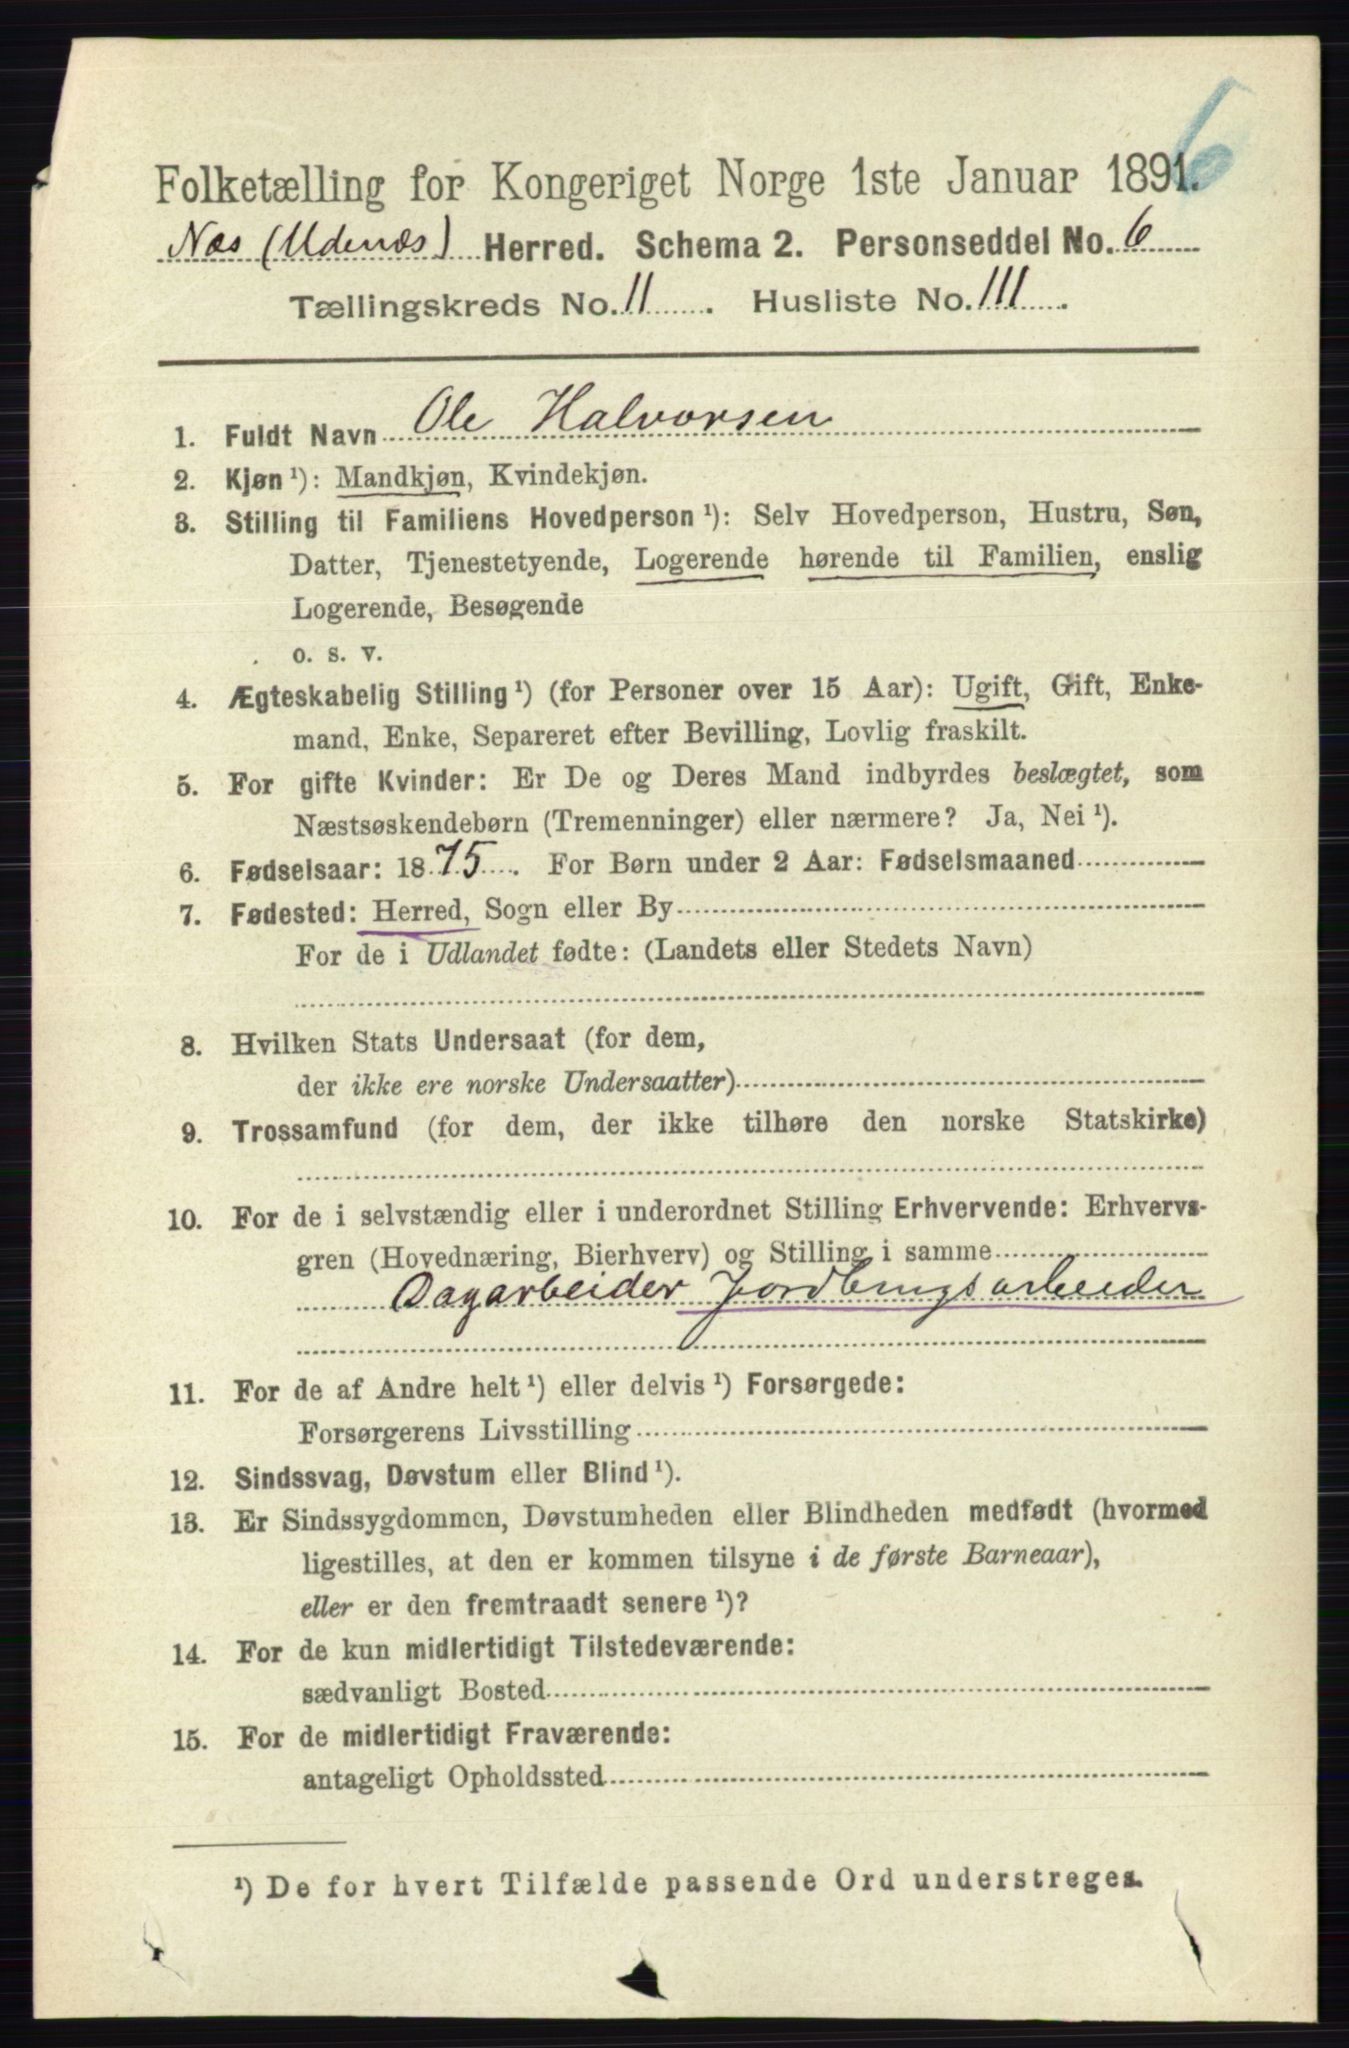 6
Folketælling for Kongeriget Norge 1ste Januar 1891.
Næs (Udenæs) Herred. Schema 2. Personseddel No. 6
Tællingskreds No. 11. Husliste No. 111.
1. Fuldt Navn Ole Halvorsen
2. Kjøn ¹): Mandkjøn, Kvindekjøn.
3. Stilling til Familiens Hovedperson ¹): Selv Hovedperson, Hustru, Søn,
Datter, Tjenestetyende, Logerende hørende til Familien, enslig
Logerende, Besøgende
o. s. v.
4. Ægteskabelig Stilling ¹) (for Personer over 15 Aar): Ugift, Gift, Enke-
mand, Enke, Separeret efter Bevilling, Lovlig fraskilt.
5. For gifte Kvinder: Er De og Deres Mand indbyrdes beslægtet, som
Næstsøskendebørn (Tremenninger) eller nærmere? Ja, Nei ¹).
6. Fødselsaar: 1875. For Børn under 2 Aar: Fødselsmaaned
7. Fødested: Herred, Sogn eller By
For de i Udlandet fødte: (Landets eller Stedets Navn)
8. Hvilken Stats Undersaat (for dem,
der ikke ere norske Undersaatter)
9. Trossamfund (for dem, der ikke tilhøre den norske Statskirke)
10. For de i selvstændig eller i underordnet Stilling Erhvervende: Erhvervs-
gren (Hovednæring, Bierhverv) og Stilling i samme
Dagarbeider Jordbrugsarbeider
11. For de af Andre helt ¹) eller delvis ¹) Forsørgede:
Forsørgerens Livsstilling
12. Sindssvag, Døvstum eller Blind ¹).
13. Er Sindssygdommen, Døvstumheden eller Blindheden medfødt (hvormed
ligestilles, at den er kommen tilsyne i de første Barneaar),
eller er den fremtraadt senere ¹)?
14. For de kun midlertidigt Tilstedeværende:
sædvanligt Bosted
15. For de midlertidigt Fraværende:
antageligt Opholdssted
¹) De for hvert Tilfælde passende Ord understreges.